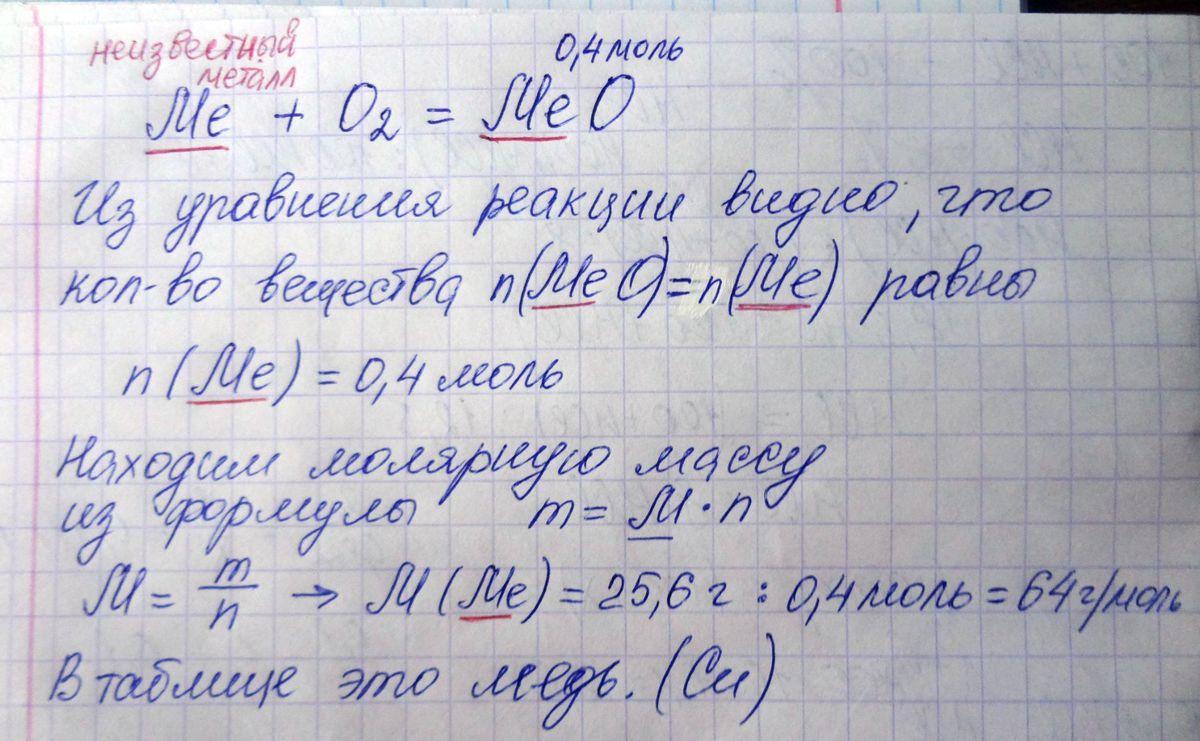 неизвестный
металл
0,4 моль
Me + O₂ = MeO
Из уравнения реакции видно, что
кол-во вещества n(MeO)=n(Me) равны
n(Me) = 0,4 моль
Находим молярную массу
из формулы m = M · n
M = m/n → M(Me) = 25,6 г : 0,4 моль = 64 г/моль
В таблице это медь. (Cu)